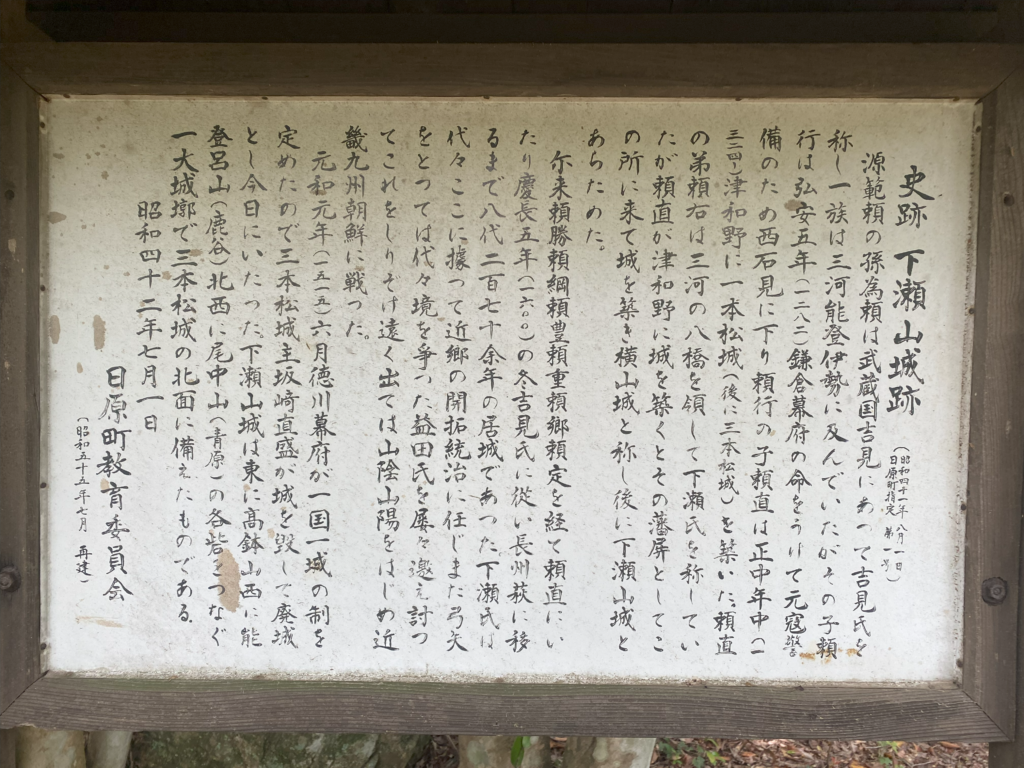 史跡 下瀬山城跡
（昭和四十一年八月一日）
日原町指定 第一号
源範頼の孫為頼は武蔵国吉見にあって吉見氏を
称し一族は三河能登伊勢に及んでいたがその子頼
行は弘安五年（一二八二）鎌倉幕府の命をうけて元寇警
備のため西石見に下り頼行の子頼直は正中年中（一
三二四）津和野に一本松城（後に三本松城）を築いた。頼直
の弟頼右は三河の八橋を領して下瀬氏を称してい
たが頼直が津和野に城を築くとその藩屏としてこ
の所に来て城を築き横山城と称し後に下瀬山城と
あらためた。
尓来頼勝頼綱頼豊頼重頼郷頼定を経て頼直にい
たり慶長五年（一六〇〇）の冬吉見氏に従い長州萩に移
るまで八代二百七十余年の居城であった。下瀬氏は
代々ここに據って近郷の開拓統治に任じまた弓矢
をとっては代々境を争った益田氏を屡々邀え討つ
てこれをしりぞけ遠く出ては山陰山陽をはじめ近
畿九州朝鮮に戦った。
元和元年（一五一五）六月徳川幕府が一国一城の制を
定めたので三本松城主坂崎直盛が城を毀して廃城
とし今日にいたった。下瀬山城は東に高鉢山西に能
登呂山（鹿谷）北西に尾中山（青原）の各砦とつなぐ
一大城塁で三本松城の北面に備えたものである
昭和四十二年七月一日
日原町教育委員会
（昭和五十五年七月 再建）